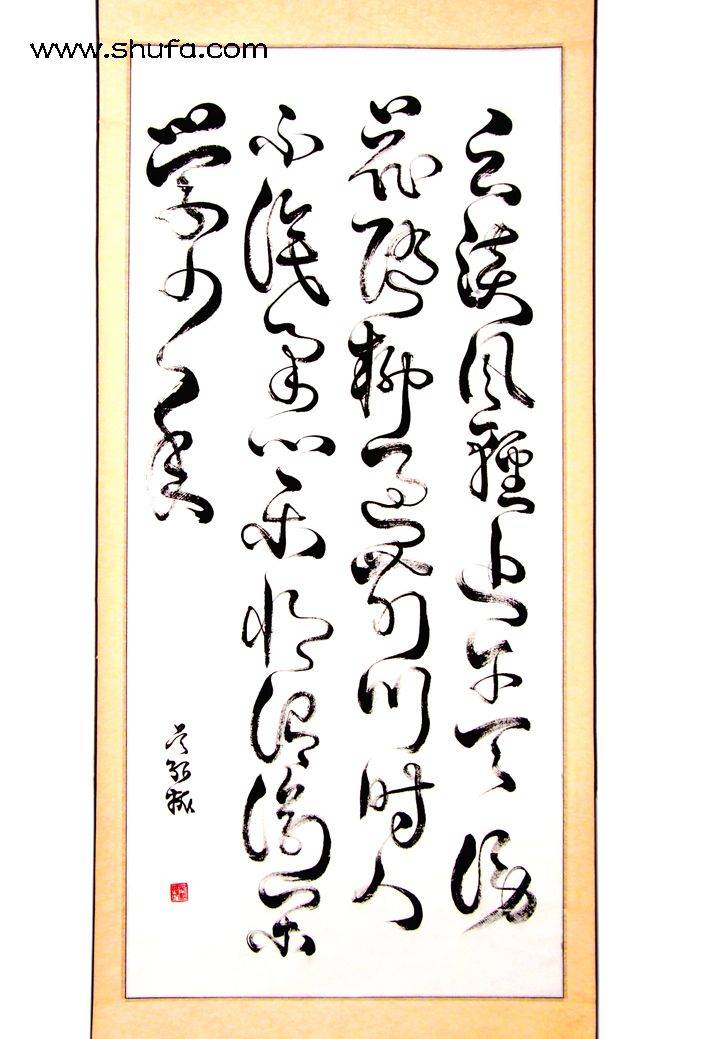 www.shufa.com
云淡风轻近午天傍
花随柳过前川时人
不识余心乐将谓偷闲
学少年